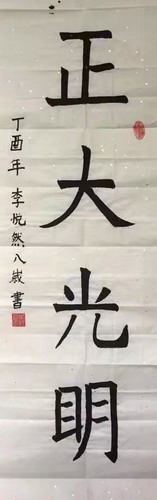 正大光明
丁酉年 李悦然八岁書